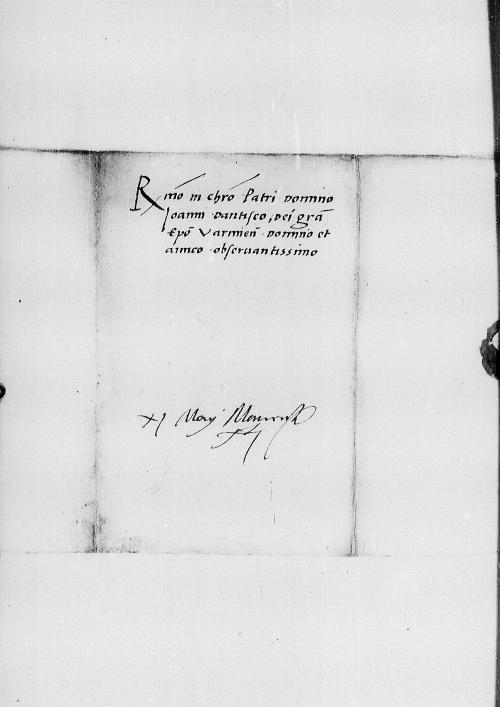 Rmo in chro Patri Domino
Joanni Dantisco, Dei gra
Epo Varmien Domino et
amico observantissimo
XI Maij